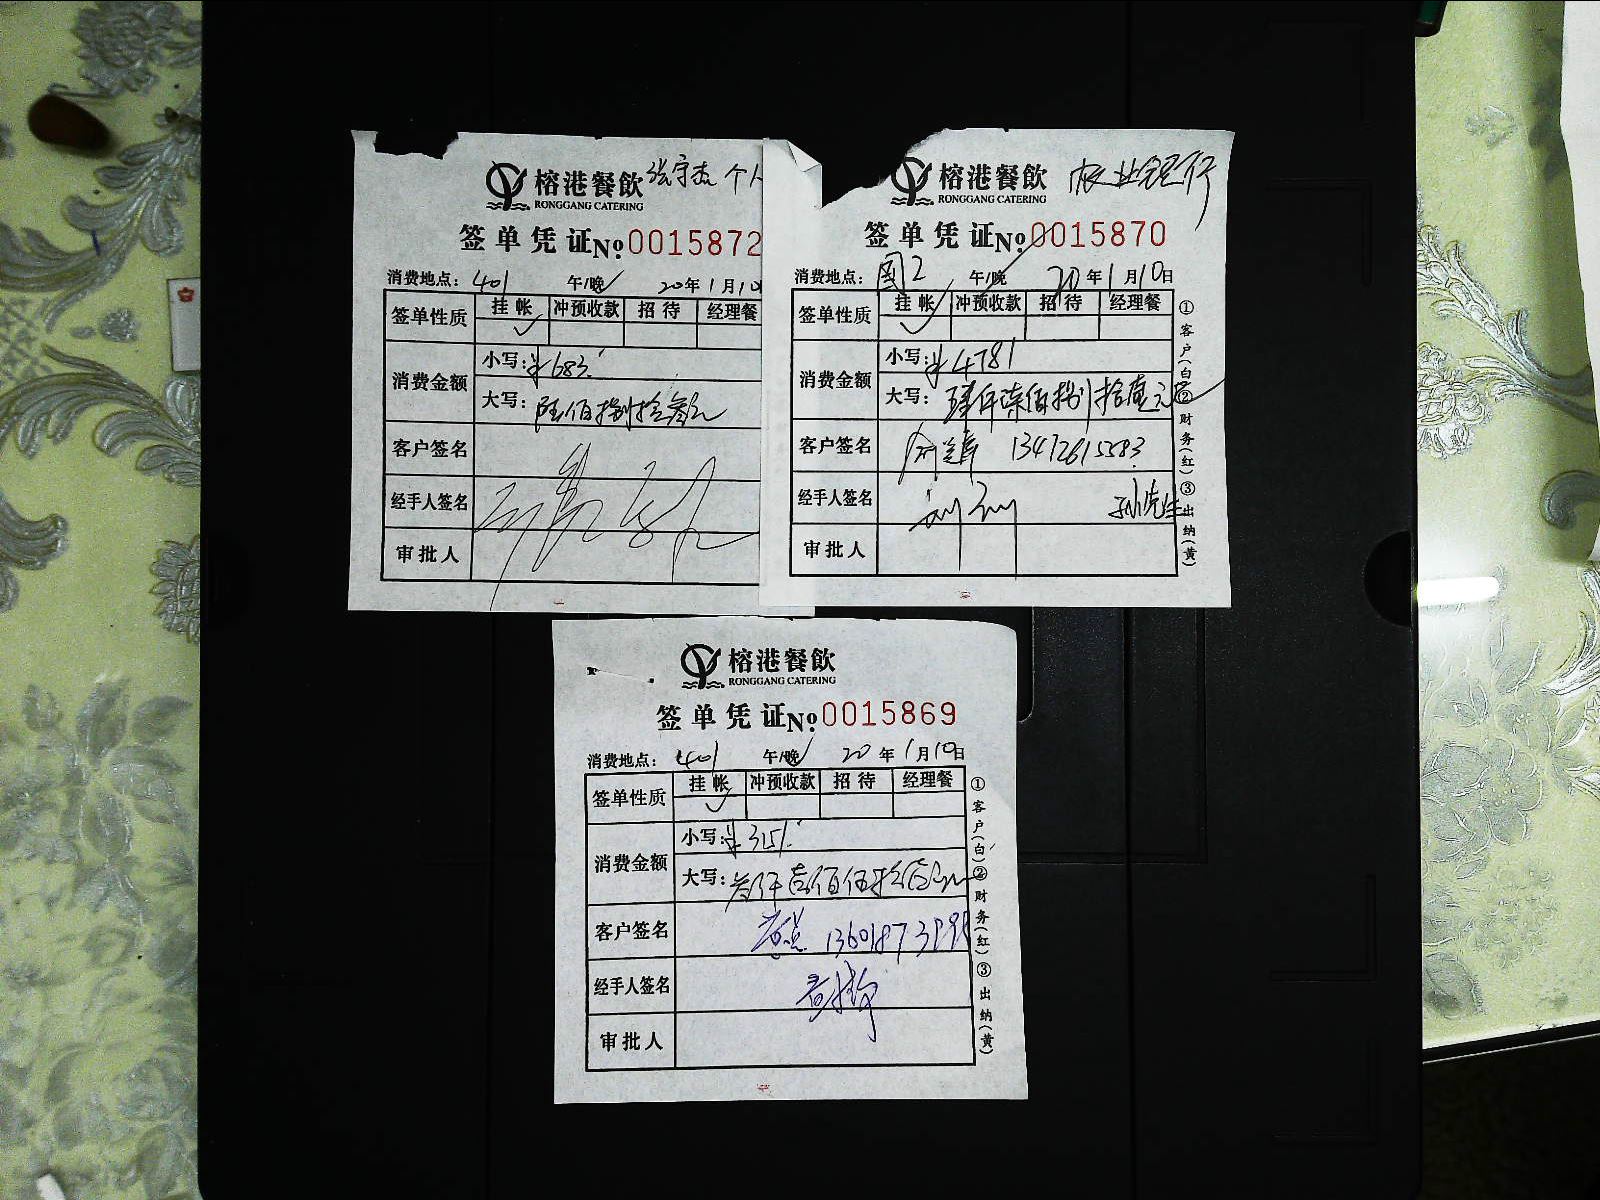 榕港餐飲 张宇杰 个人
RONGGANG CATERING
签单凭证 No. 0015872
消费地点: 401 午/晚 20年1月10
签单性质 挂帐 冲预收款 招待 经理餐
✓
消费金额 小写: ¥683
大写: 陆佰捌拾叁元
客户签名
经手人签名
审批人
榕港餐飲 农业银行
RONGGANG CATERING
签单凭证 No. 0015870
消费地点: 国2 午/晚 20年1月10日
签单性质 挂帐 冲预收款 招待 经理餐
✓
消费金额 小写: ¥4781
大写: 肆仟柒佰捌拾壹元
客户签名 13472615583
经手人签名 孙先生
审批人
①客户(白)②财务(红)③出纳(黄)
榕港餐飲
RONGGANG CATERING
签单凭证 No. 0015869
消费地点: 401 午/晚 20年1月10日
签单性质 挂帐 冲预收款 招待 经理餐
✓
消费金额 小写: ¥3151
大写: 叁仟壹佰伍拾壹元
客户签名
经手人签名
审批人
①客户(白)②财务(红)③出纳(黄)